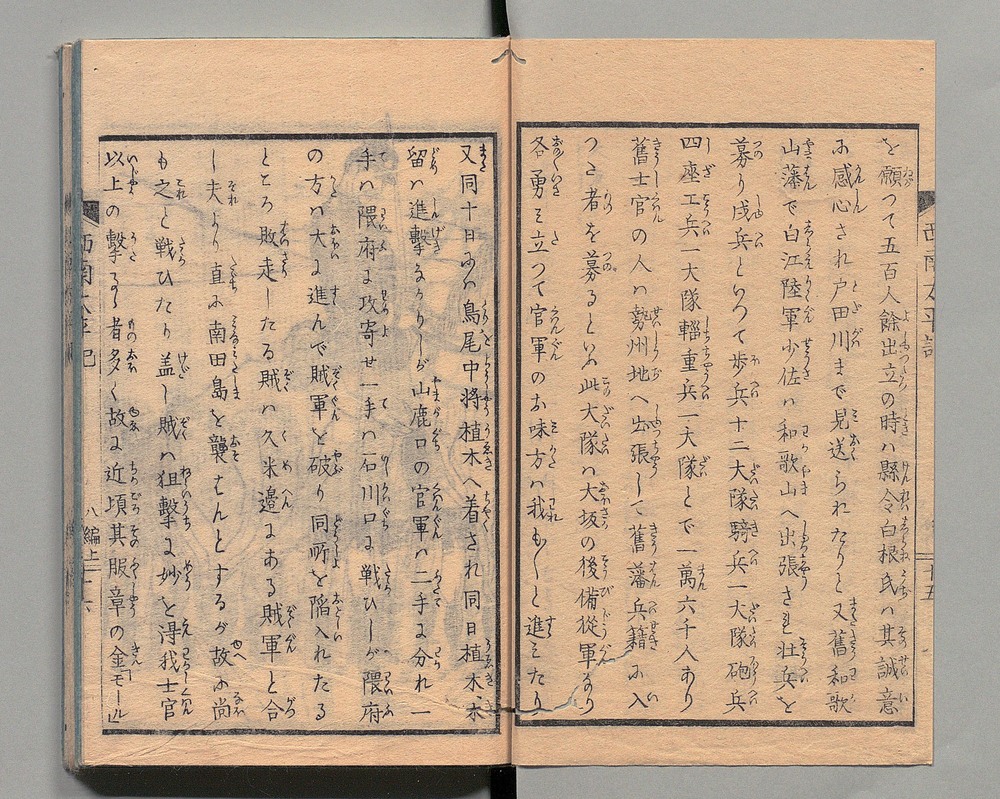 を願つて五百人餘出立の時ハ縣令白根氏ハ其誠意
に感心され戸田川まで見送られたりと又舊和歌
山藩で白江陸軍少佐ハ和歌山へ出張され壯兵を
募り戍兵といつて歩兵十二大隊騎兵一大隊砲兵
四座工兵一大隊輜重兵一大隊とで一萬六千人あり
舊士官の人ハ勢州地へ出張して舊藩兵籍に入
つた者を募るといふ此大隊ハ大坂の後備從軍なり
各勇み立つて官軍のお味方ハ我も〳〵と進みたり
又同十日にハ鳥尾中將植木へ着され同日植木木
留ハ進撃なかりしが山鹿口の官軍ハ二手に分れ一
手ハ隈府に攻寄せ一手ハ石川口に戦ひしが隈府
の方ハ大に進んで賊軍を破り同所を陥入れたる
ところ敗走したる賊ハ久米邉にある賊軍と合
し夫より直に南田島を襲はんとするが故に尚
も之と戦ひたり盖し賊ハ狙撃に妙を得我士官
以上の撃るゝ者多く故に近頃其服章の金モール
西南太平記
八編上
十五
十六